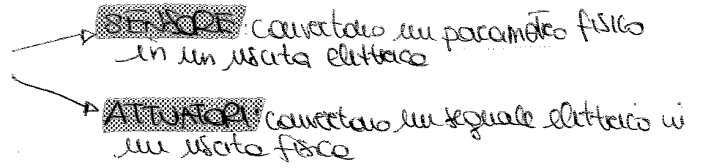 SENSORE: convertono un parametro fisico
in un uscita elettrica
ATTUATORI: convertono un segnale elettrico in
un uscita fisica